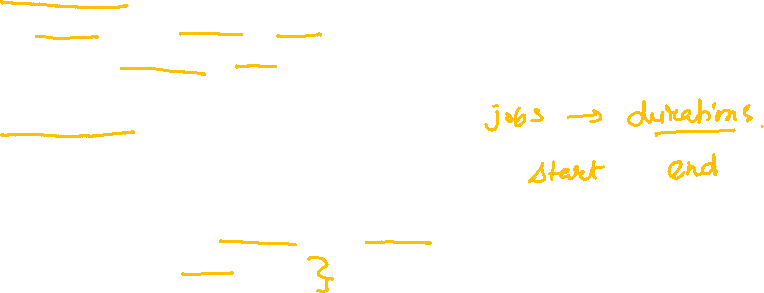 jobs → durations.
start end